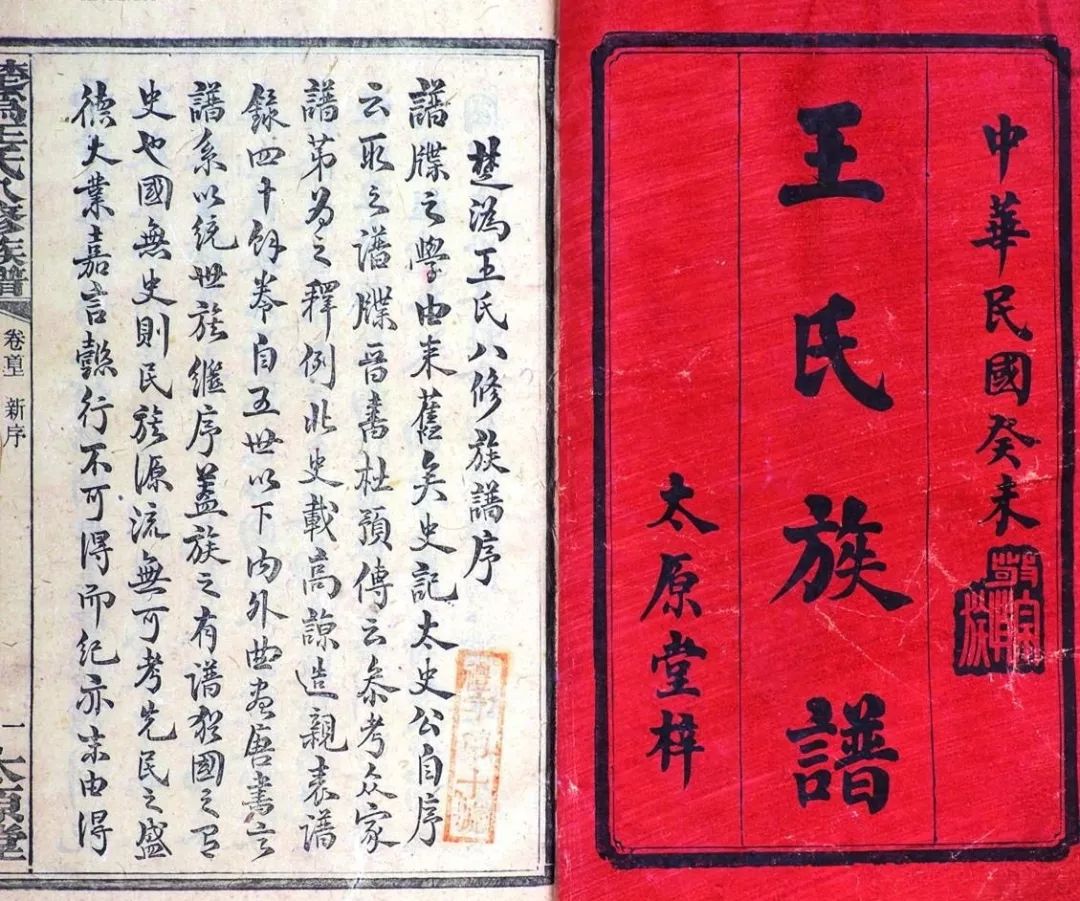 中華民國癸未
王氏族譜
太原堂梓
楚溈王氏八修族譜序
譜牒之學由来舊矣史记太史公自序
云取之譜牒晉書杜預傳云叅考众家
譜第為之釋例北史載高諒造親表譜
錄四十餘卷自五世以下内外曲盡唐書言
譜系以統世族繼序蓋族之有譜犹國之有
史也國無史則民族源流無可考先民之盛
德大業嘉言懿行不可得而紀亦末由得
楚溈王氏八修族譜
卷首 新序
一
太原堂